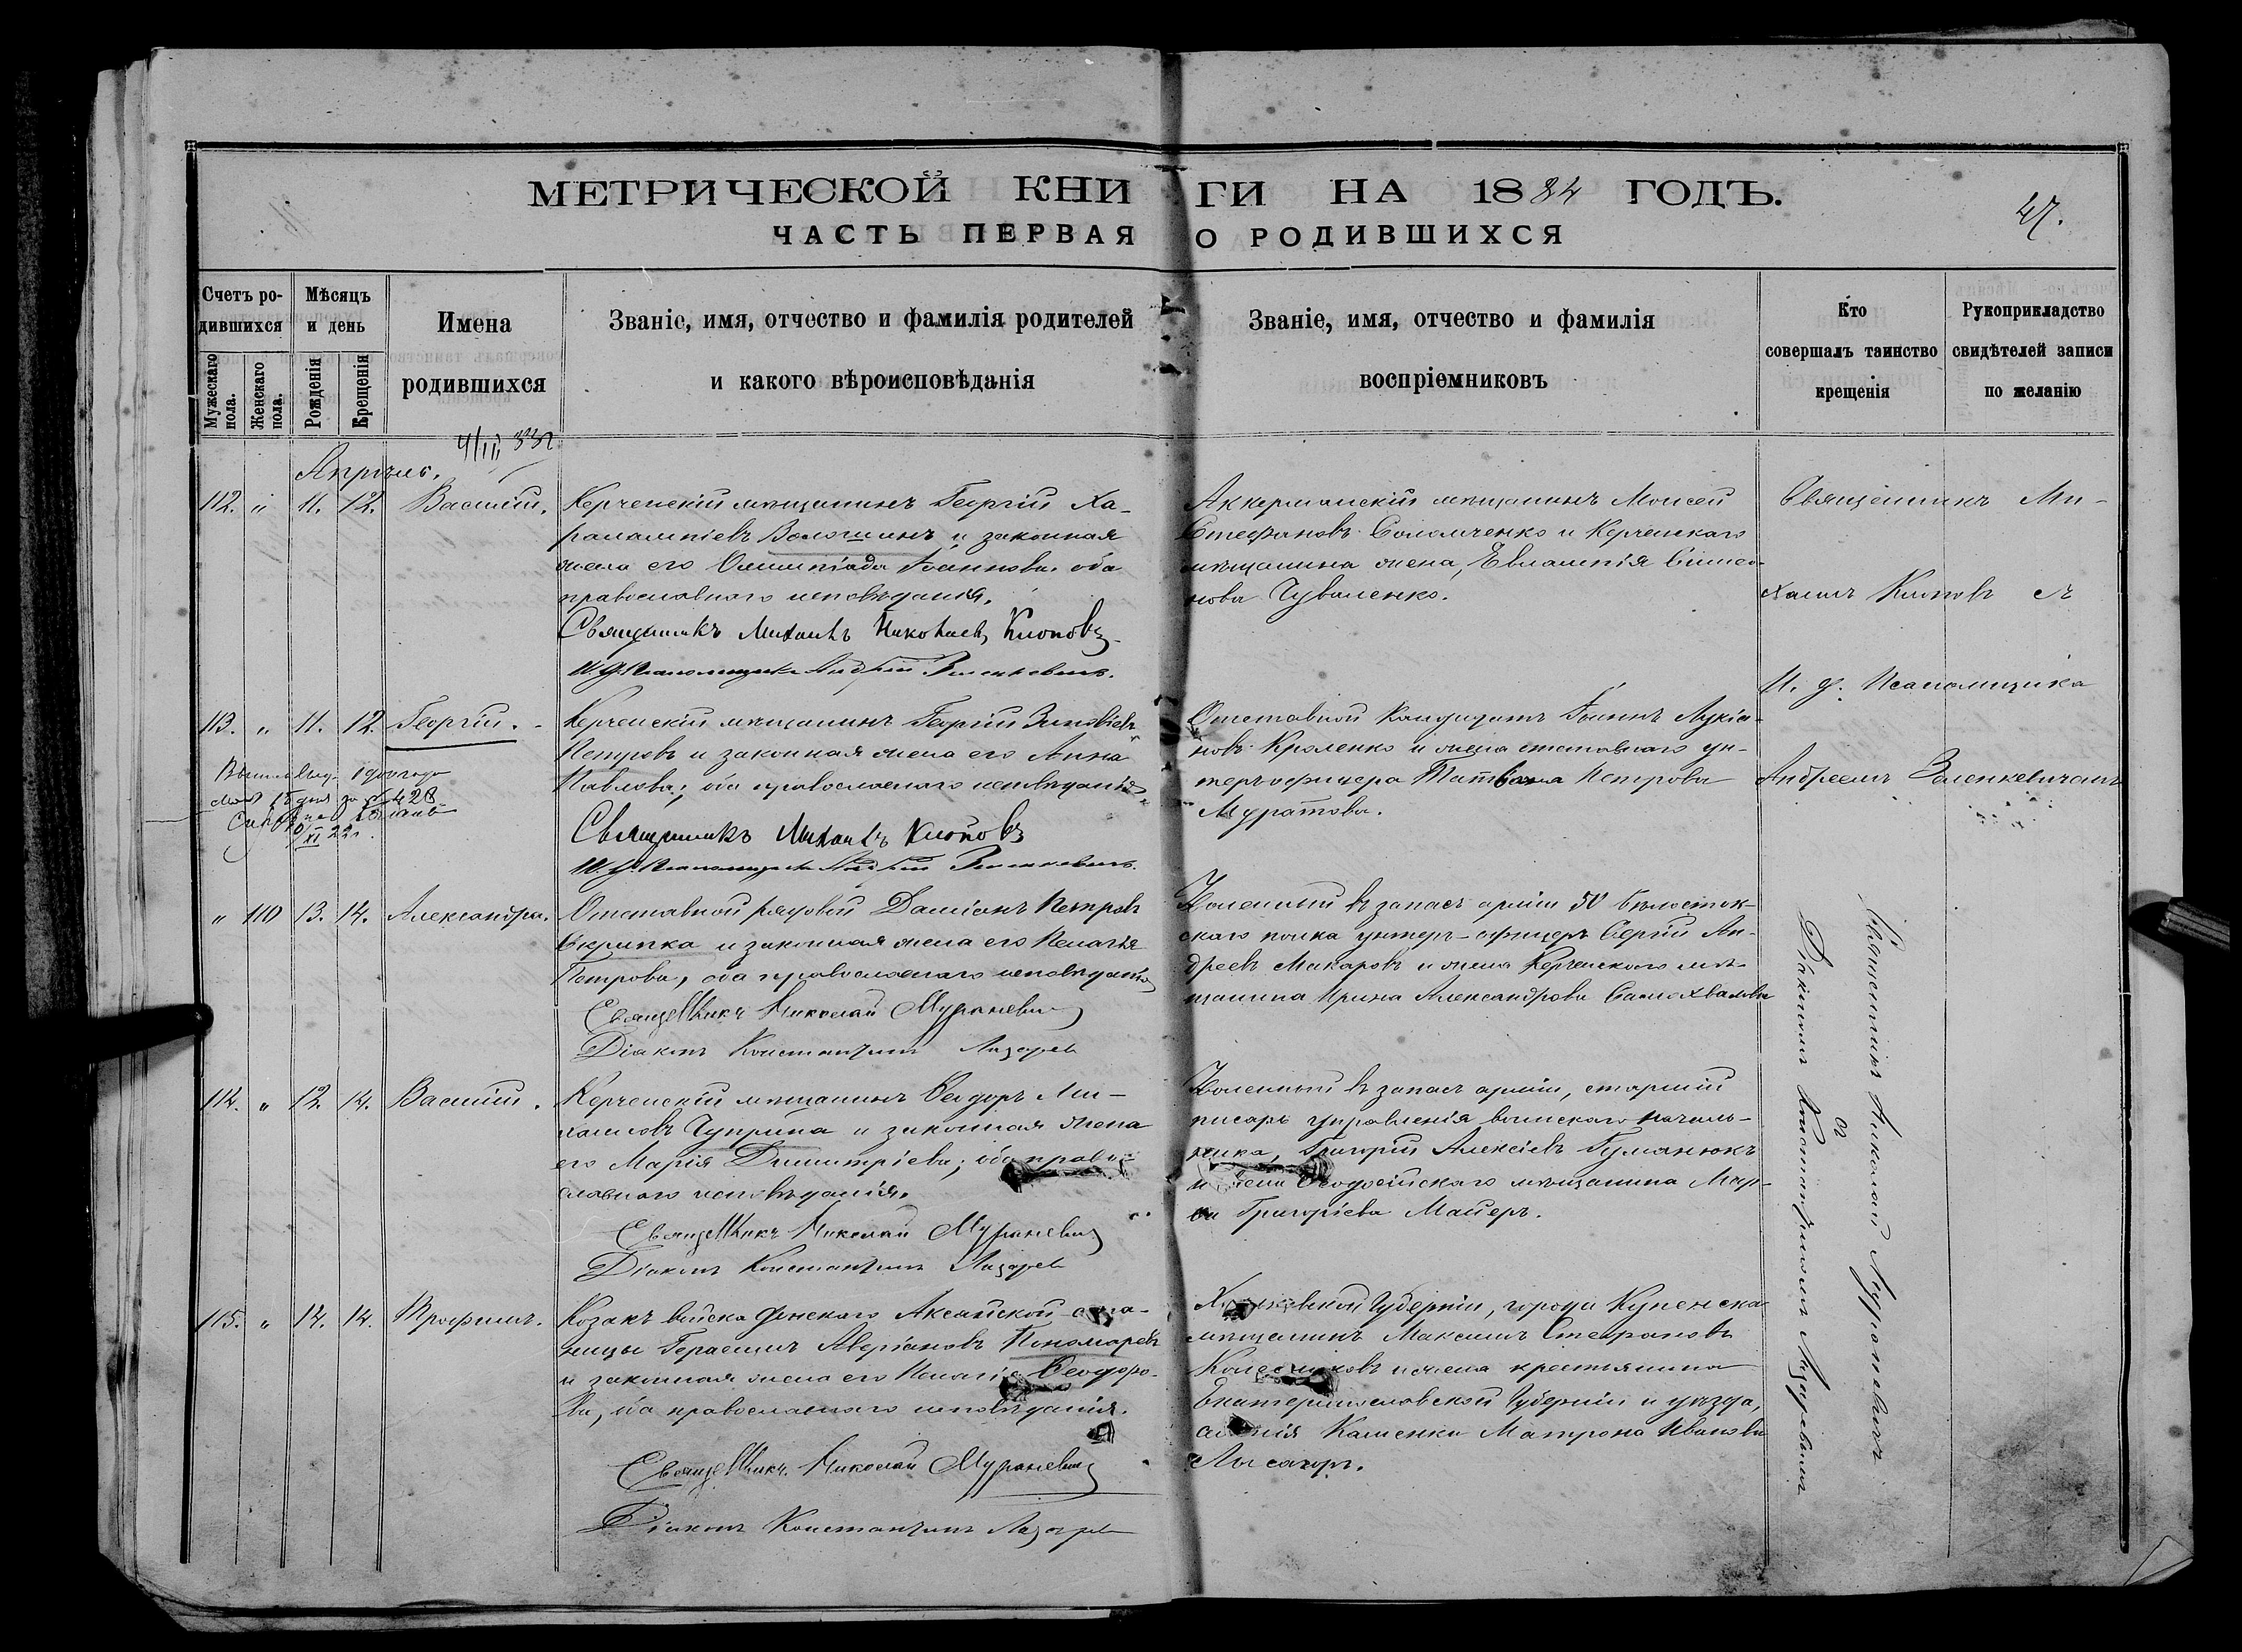 МЕТРИЧЕСКОЙ КНИГИ НА 1884 ГОДЪ.
47.
ЧАСТЬ ПЕРВАЯ О РОДИВШИХСЯ
Счетъ родившихся
Мужескаго пола.
Женскаго пола.
Мѣсяцъ и день
Рожденія
Крещенія
Имена
родившихся
Званіе, имя, отчество и фамилія родителей
и какого вѣроисповѣданія
Званіе, имя, отчество и фамилія
воспріемниковъ
Кто
совершалъ таинство
крещенія
Рукоприкладство
свидѣтелей записи
по желанію
Апрѣль.
112. " 11. 12. Василій.
Керченскій мѣщанинъ Георгій Ха-
рлампіевъ Волошинъ и законная
жена его Олимпіада Іоаннова, оба
православнаго исповѣданія.
Священникъ Михаилъ Николаевъ Клоповъ
И. д. Псаломщика Андрей Зеленкевичъ.
Аккерманскій мѣщанинъ Моисей
Стефановъ Соломченко и Керченскаго
мѣщанина жена, Евлампія Симео-
нова Чуваленко.
Священникъ Ми-
хаилъ Клоповъ съ
И. д. Псаломщика
Андреемъ Зеленкевичемъ
113. " 11. 12. Георгій.
Керченскій мѣщанинъ Георгій Зиновіевъ
Петровъ и законная жена его Анна
Павлова, оба православнаго исповѣданія
Священникъ Михаилъ Клоповъ
И. д. Псаломщика Андрей Зеленкевичъ.
Отставной Кандидатъ Іоаннъ Лукіа-
новъ Кроленко и жена отставного ун-
теръ-офицера Татіана Петрова
Муратова.
" 110 13. 14. Александра.
Отставной рядовой Даміанъ Петровъ
Скрипка и законная жена его Пелагія
Петрова, оба православнаго исповѣданія
Священникъ Николай Мураневичъ
Діаконъ Константинъ Лазаревъ
Уволенный въ запасъ арміи 50 Бѣлосток-
скаго полка унтеръ-офицеръ Сергій Ан-
дреевъ Макаровъ и жена Керченскаго мѣ-
щанина Ирина Александрова Самохвалова
Священникъ Николай Мураневичъ
съ
Діакономъ Константиномъ Лазаревымъ
114. " 12. 14. Василій.
Керченскій мѣщанинъ Ѳеодоръ Ми-
хаиловъ Чуприна и законная жена
его Марія Димитріева; оба право-
славнаго исповѣданія.
Священникъ Николай Мураневичъ
Діаконъ Константинъ Лазаревъ
Уволенный въ запасъ арміи, старшій
писарь управленія воинскаго началь-
ника, Григорій Алексіевъ Гуманюкъ
и жена Ѳеодосійскаго мѣщанина Мар-
ѳа Григоріева Майеръ.
115. " 14. 14. Трофимъ.
Козакъ войска Донскаго Аксайской ста-
ницы Герасимъ Аверіановъ Пономаревъ
и законная жена его Пелагія Ѳеодоро-
ва, оба православнаго исповѣданія.
Священникъ Николай Мураневичъ
Діаконъ Константинъ Лазаревъ
Харьковской Губерніи, города Купенска
мѣщанинъ Максимъ Стефановъ
Колесниковъ и жена крестьянина
Екатеринославской Губерніи и уѣзда,
селенія Каменки Матрона Иванова
Лысагоръ.